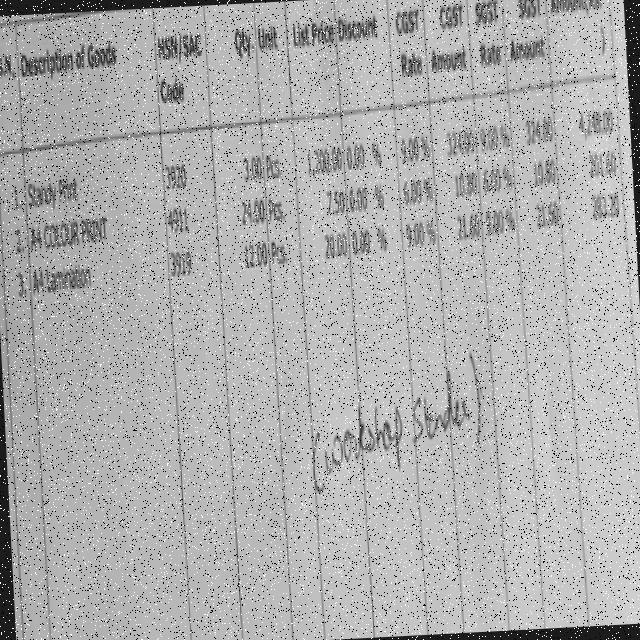 S.N. Description of Goods HSN/SAC Code Qty. Unit List Price Discount CGST Rate CGST Amount SGST Rate SGST Amount
1. Standy Print 3920 3.00 Pcs. 0.00 % 9.00 % 9.00 %
2. A4 COLOUR PRINT 4911 24.00 Pcs. 0.00 % 10.80 10.80
3. A4 Lamination 12.00 Pcs. 20.00 0.00 % 9.00 % 21.60 9.00 % 21.60 283.20
(Workshop Standee)